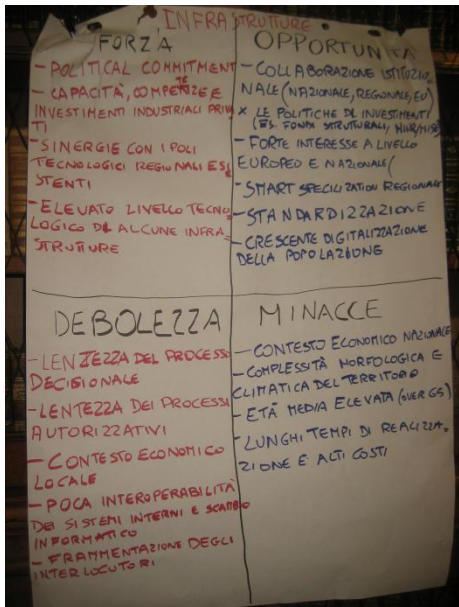 INFRASTRUTTURE
FORZA
- POLITICAL COMMITMENT
- CAPACITÀ, COMPETENZE E
INVESTIMENTI INDUSTRIALI PRIVA
TI
- SINERGIE CON I POLI
TECNOLOGICI REGIONALI ESI
STENTI
- ELEVATO LIVELLO TECNO
LOGICO DI ALCUNE INFRA-
STRUTTURE
OPPORTUNITÀ
- COLLABORAZIONE ISTITUZIO
NALE (NAZIONALE, REGIONALE, EU)
x LE POLITICHE DI INVESTIMENTI
(ES. FONDI STRUTTURALI, MIUR/MISE)
- FORTE INTERESSE A LIVELLO
EUROPEO E NAZIONALE (
- SMART SPECILIZATION REGIONALE
- STANDARDIZZAZIONE
- CRESCENTE DIGITALIZZAZIONE
DELLA POPOLAZIONE
DEBOLEZZA
- LENTEZZA DEL PROCESSO
DECISIONALE
- LENTEZZA DEI PROCESSI
AUTORIZZATIVI
- CONTESTO ECONOMICO
LOCALE
- POCA INTEROPERABILITÀ
DEI SISTEMI INTERNI E SCAMBIO
INFORMATICO
- FRAMMENTAZIONE DEGLI
INTERLOCUTORI
MINACCE
- CONTESTO ECONOMICO NAZIONALE
- COMPLESSITÀ MORFOLOGICA E
CLIMATICA DEL TERRITORIO
- ETÀ MEDIA ELEVATA (OVER 65)
- LUNGHI TEMPI DI REALIZZA-
ZIONE E ALTI COSTI